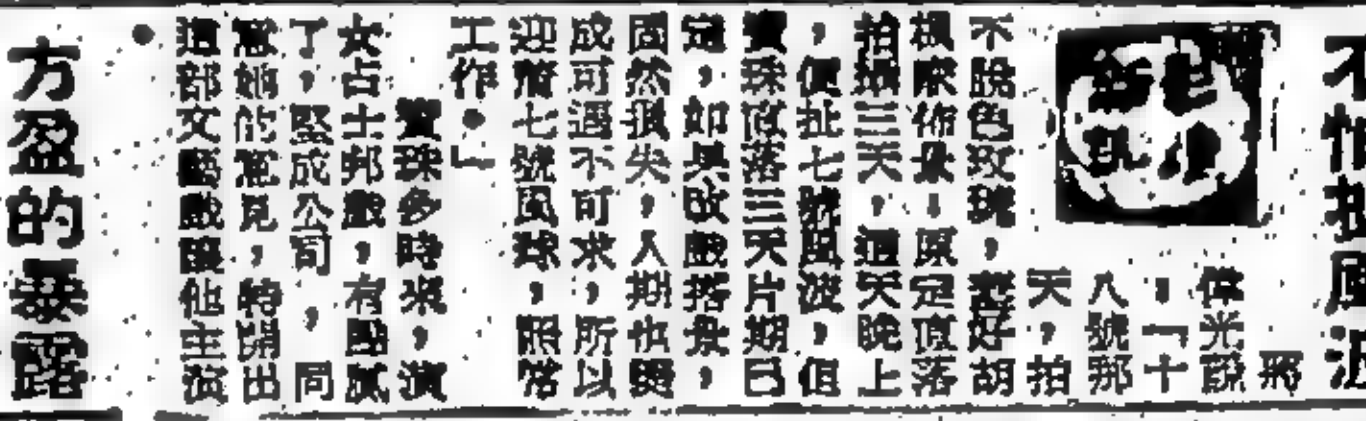 不怕風波
蔣
偉光說
：「十
八號那
天，拍
不脫色玫瑰，好胡
楓佈景，原定落
拍三天，這天晚上
，便扯七號風波，但
寶珠落三天片期已
定，如果改戲搭景，
固然損失，人期也變
成可遇不可求，所以
迎着七號風球，照常
工作。」
寶珠多時來，演
女占士邦戲，有點膩
了，堅成公司，同
意她的意見，特開出
這部文藝戲讓他主演
。
方盈的暴露